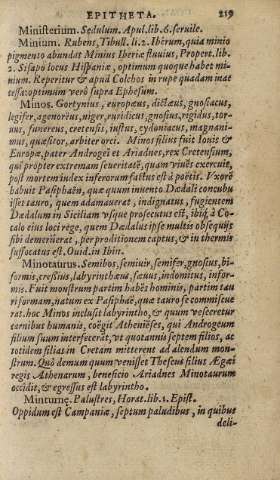 EPITHETA. 219
Ministerium. Sedulum. Apul. lib. 6. seruile.
Minium. Rubens, Tibull. li. 2. Iberum, quia minio
pigmento abundat Minius Iberiæ fluuius, Propert. lib.
2. Sisapo locus Hispaniæ, optimum quoque habet mi-
nium. Reperitur & apud Colchos in rupe quadam inac
cessa: optimum verò supra Ephesum.
Minos. Gortynius, europæus, dictæus, gnosiacus,
legifer, agenoreus, niger, iuridicus, gnosius, rigidus, tor-
uus, funereus, cretensis, iustus, cydoniacus, magnani-
mus, quæsitor, arbiter orci. Minos filius fuit Iouis &
Europæ, pater Androgei et Ariadnes, rex Cretensium,
qui propter extremam seueritatē, quam viuēs exercuit,
post mortem index inferorum factus est à poëtis. Vxorē
habuit Pasiphaën, quæ quum inuento Dædali concubu
isset tauro, quem adamauerat, indignatus, fugientem
Dædalum in Siciliam vsque prosecutus est, ibiq; à Co-
calo eius loci rege, quem Dædalus ipse multis obsequijs
sibi demeruerat, per proditionem captus, & in thermis
suffocatus est. Ouid. in Ibin.
Minotaurus. Semibos, semiuir, semifer, gnosius, bi-
formis, cresius, labyrinthæus, sæuus, indomitus, infor-
mis. Fuit monstrum partim habēs hominis, partim tau
ri formam, natum ex Pasiphaë, quæ tauro se commiscue
rat. hoc Minos inclusit labyrintho, & quum vesceretur
carnibus humanis, coëgit Atheniēses, qui Androgeum
filium suum interfecerāt, vt quotannis septem filios, ac
totidem filias in Cretam mitterent ad alendum mon-
strum. Quò demum quum venisset Theseus filius Ægæi
regis Athenarum, beneficio Ariadnes Minotaurum
occidit, & egressus est labyrintho.
Minturnę. Palustres, Horat. lib. 1. Epist.
Oppidum est Campaniæ, septum paludibus, in quibus
deli-